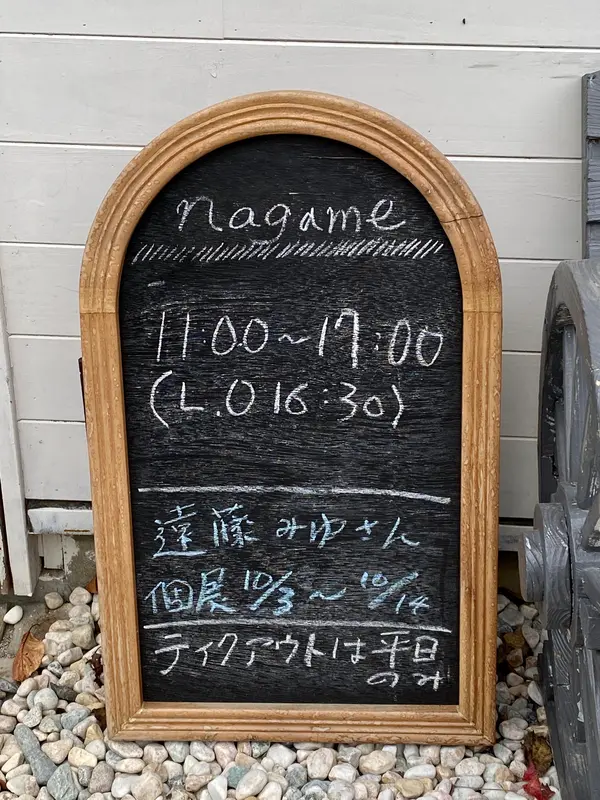 nagame
11:00~17:00
(L.O 16:30)
遠藤 みゆさん
個展 10/3 ~ 10/14
ティクアウトは平日
のみ